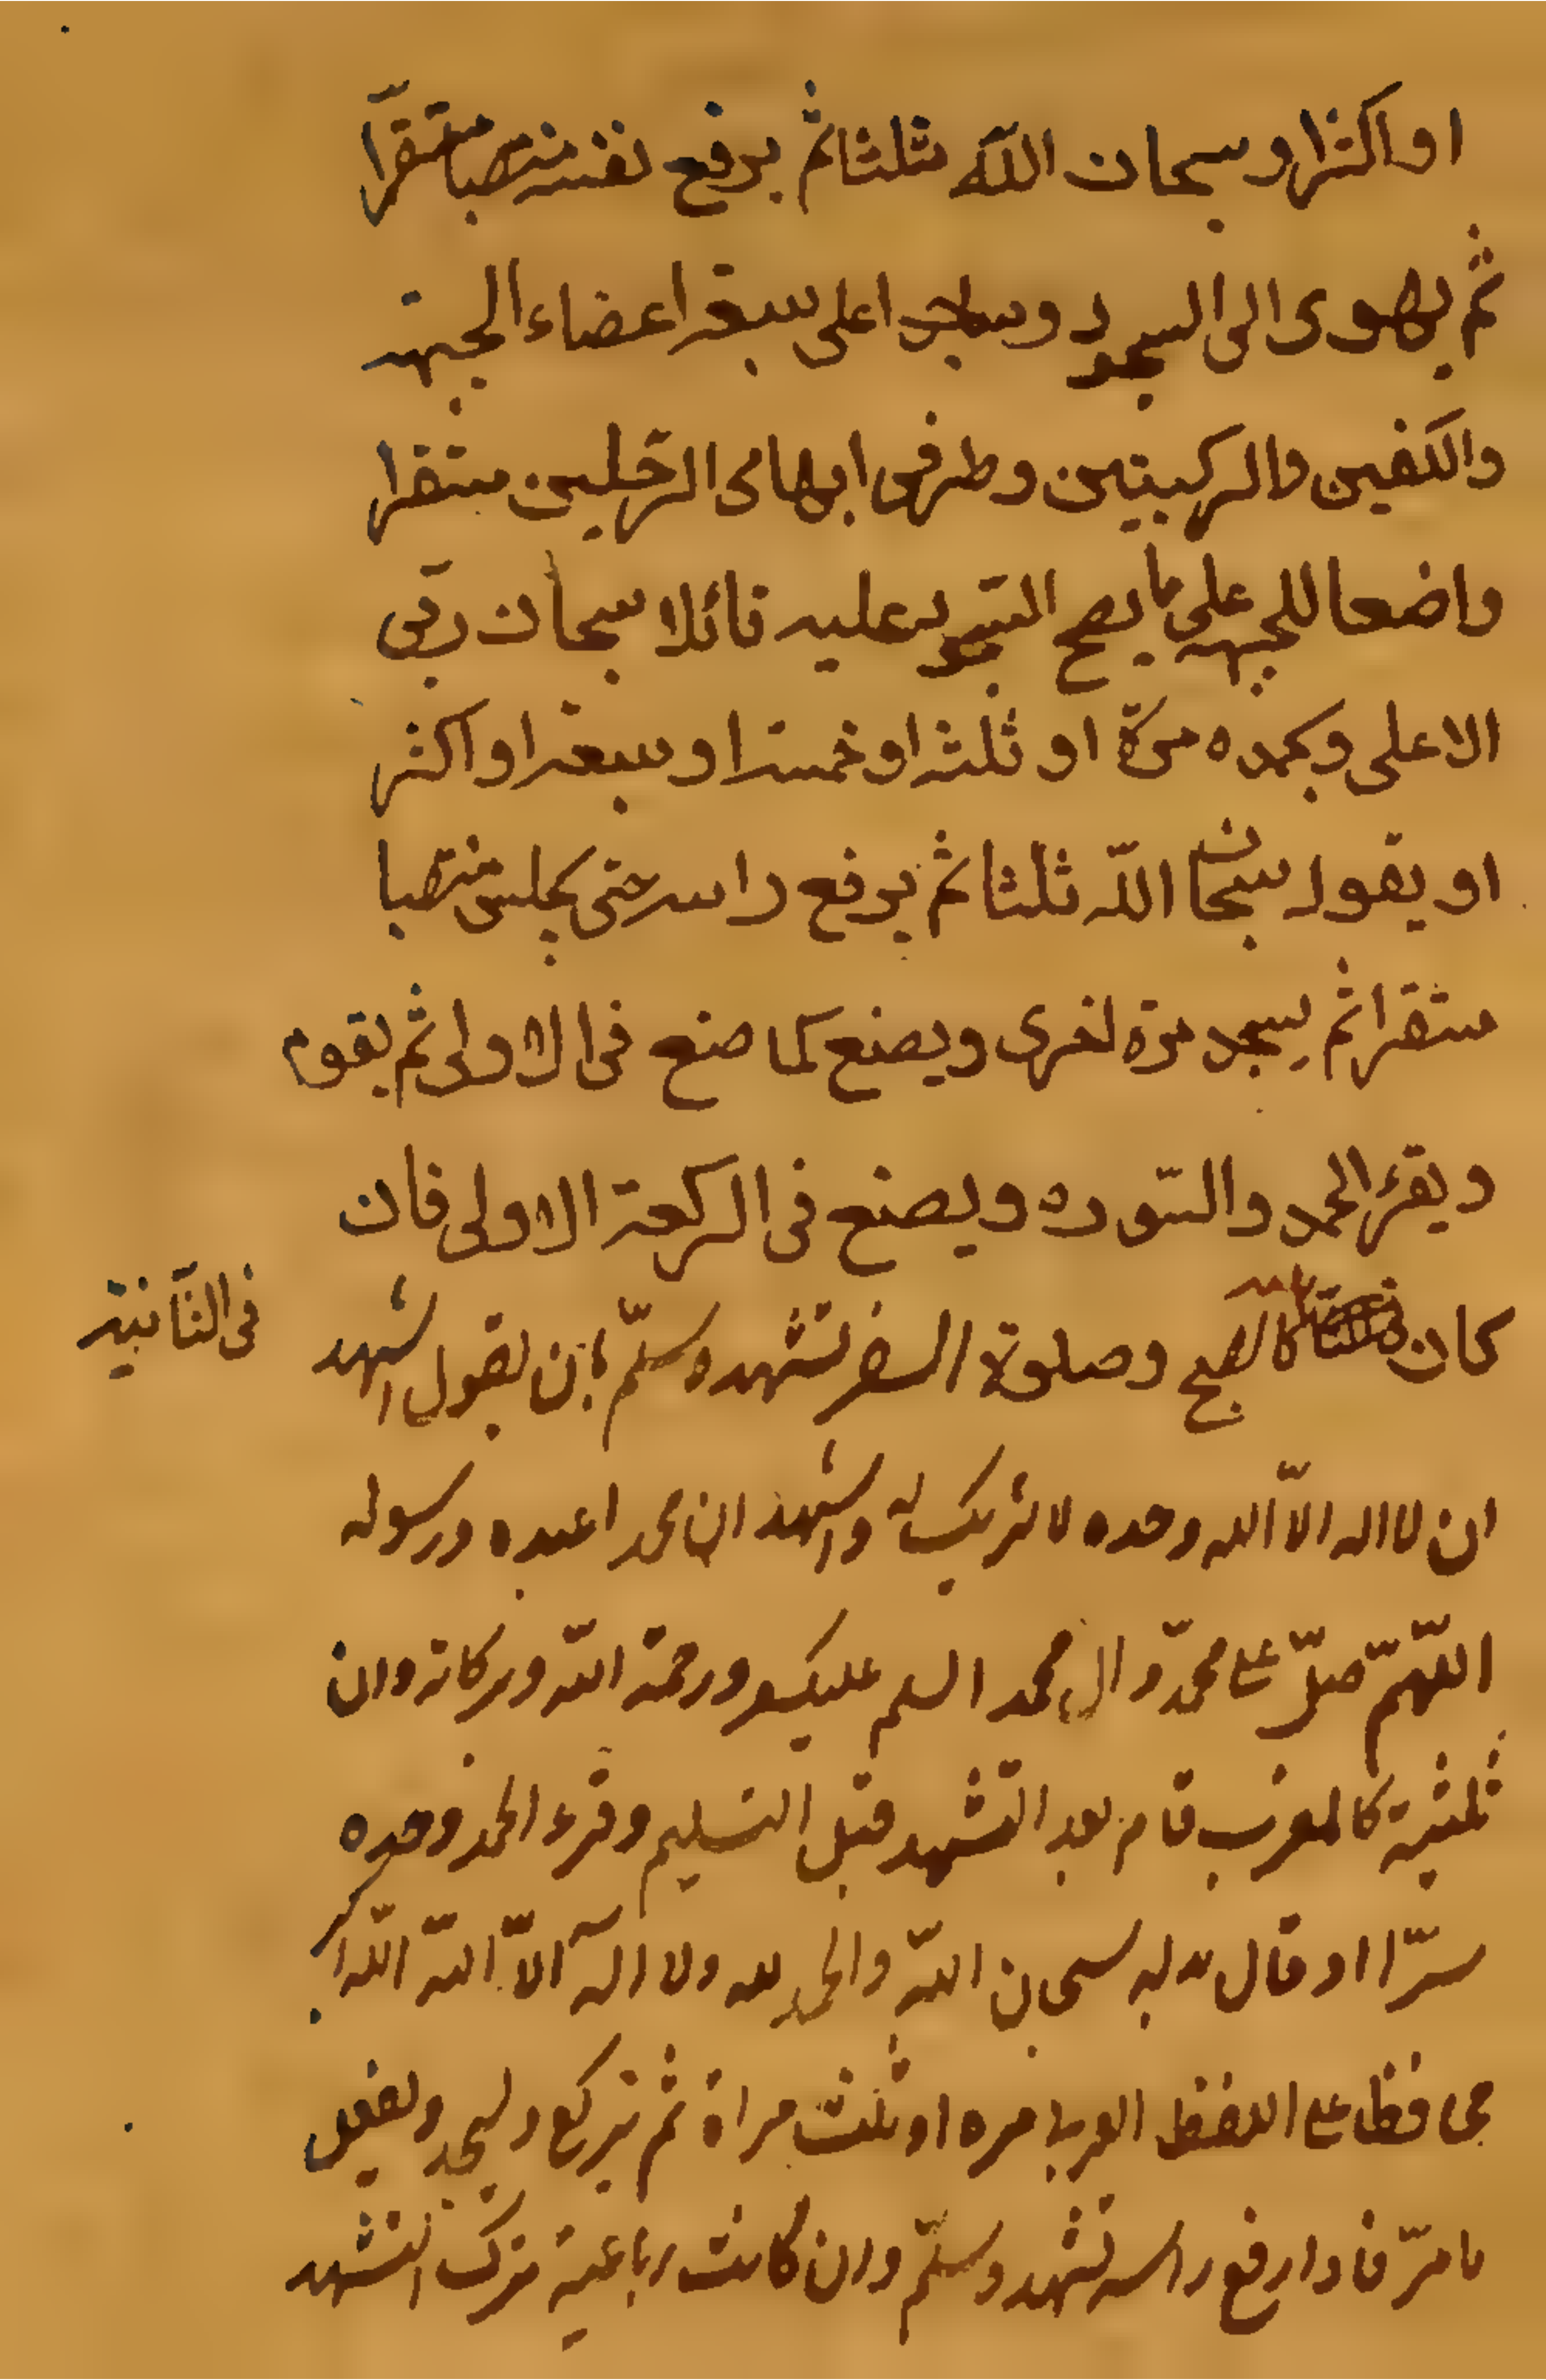 او اكثر او سبحان الله ثلثا ثم يرفع نفسه منتصبا مستقرّا
ثم يهوى الى السجود وساجدا على سبعة اعضاء الجبهة
والكفين والركبتين وطرفى ابهامى الرّجلين مستقرا
واضعا للجبهة على ما يصح السّجود عليه قائلا سبحان ربّى
الاعلى وبحمده مرّة او ثلثه او خمسة او سبعة او اكثر
او يقول سبحان اللّه ثلثا ثم يرفع راسه حتى يجلس منتصبا
مستقرا ثم يسجد مرة اخرى ويصنع كما صنع فى الاولى ثم يقوم
ويقرء الحمد والسّوره ويصنع فى الركعة الاولى فان
كان كالصبح وصلوة السفر تشهد وسلّم بان يقول اشهد
فى الثّانية
ان لا اله الاّ الله وحده لا شريك له واشهد ان محمدا عبده ورسوله
اللّهمّ صلّ على محمّد وال محمد السلم عليكم ورحمة اللّه وبركاته وان
ثلثية كالمغرب قام بعد التّشهد قبل التسليم وقرء الحمد وحده
سرّا او قال بدله سبحان اللّه والحمد لله ولا اله الاّ اللّه اللّه اكبر
محافظا على اللفظ العربى مره او ثلث مراة ثم يركع ويسجد ويفعل
ما مرّ فاذا رفع راسه تشهد وسلّم وان كانت رباعية ترك التشهد